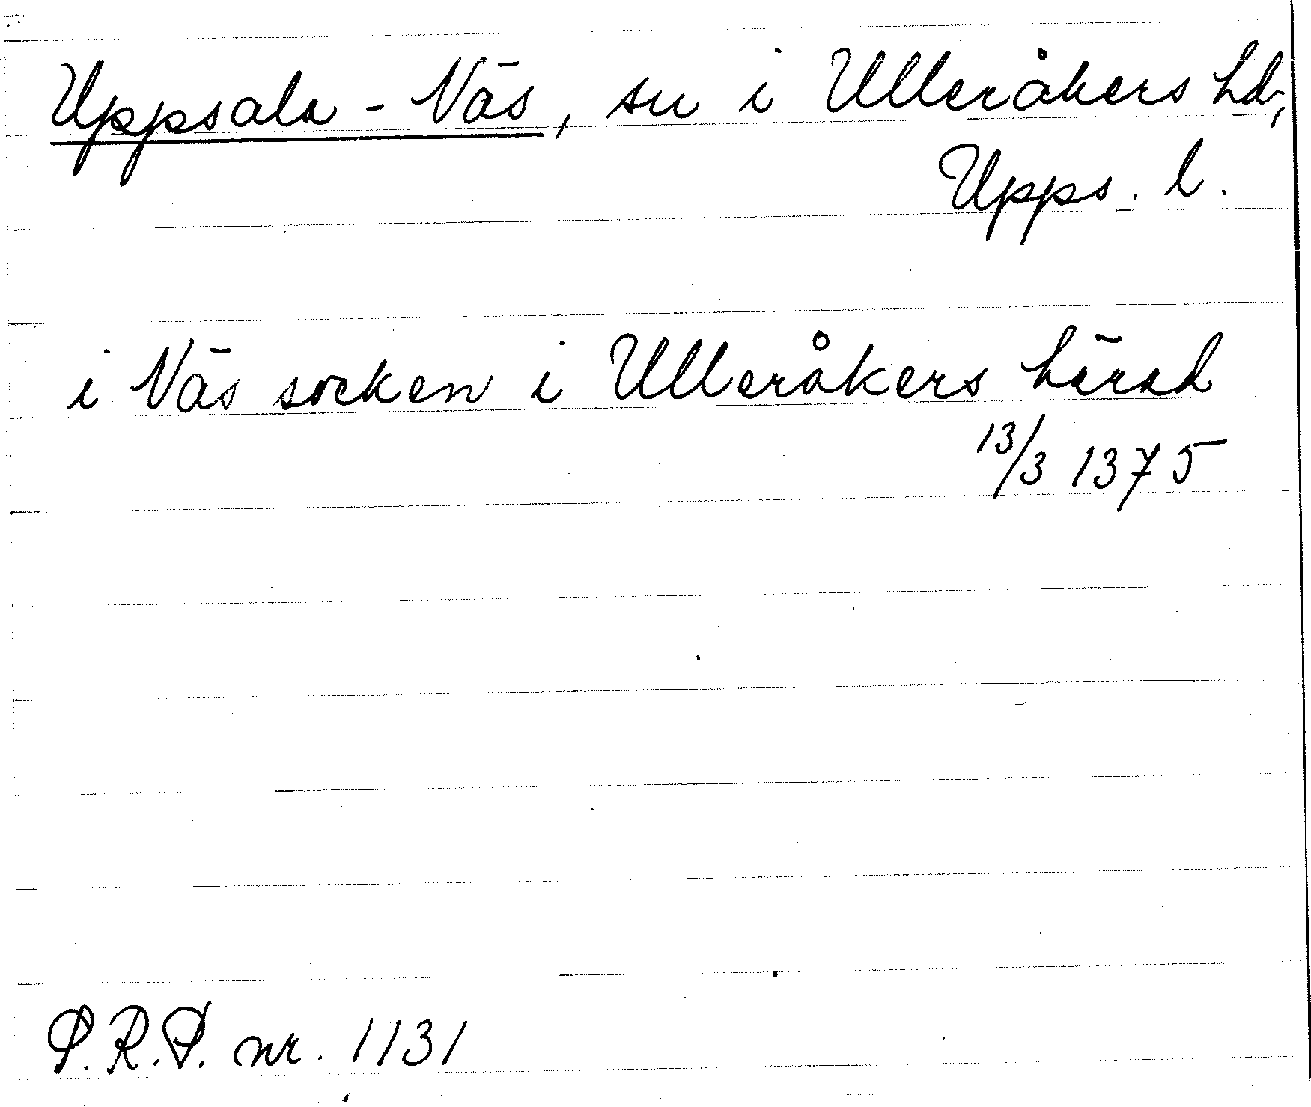 Uppsala-Näs, sn i Ulleråkers hd,
Upps. l.
i Näs socken i Ulleråkers härad
13/3 1375
P.R.P. nr. 1131